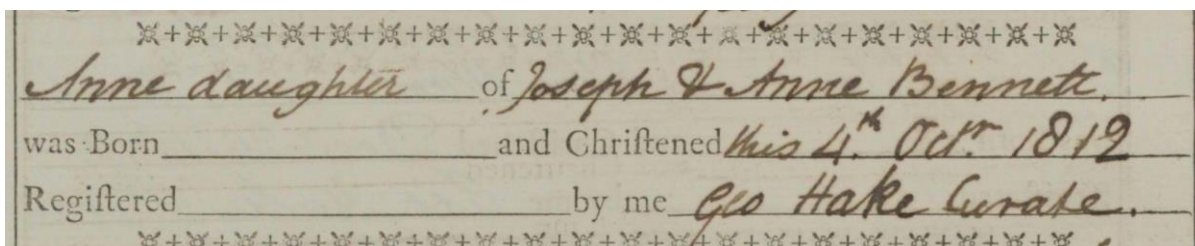 Anne daughter of Joseph & Anne Bennett.
was Born and Chriſtened this 4.th Octr. 1812
Regiſtered by me Geo Hake Curate.